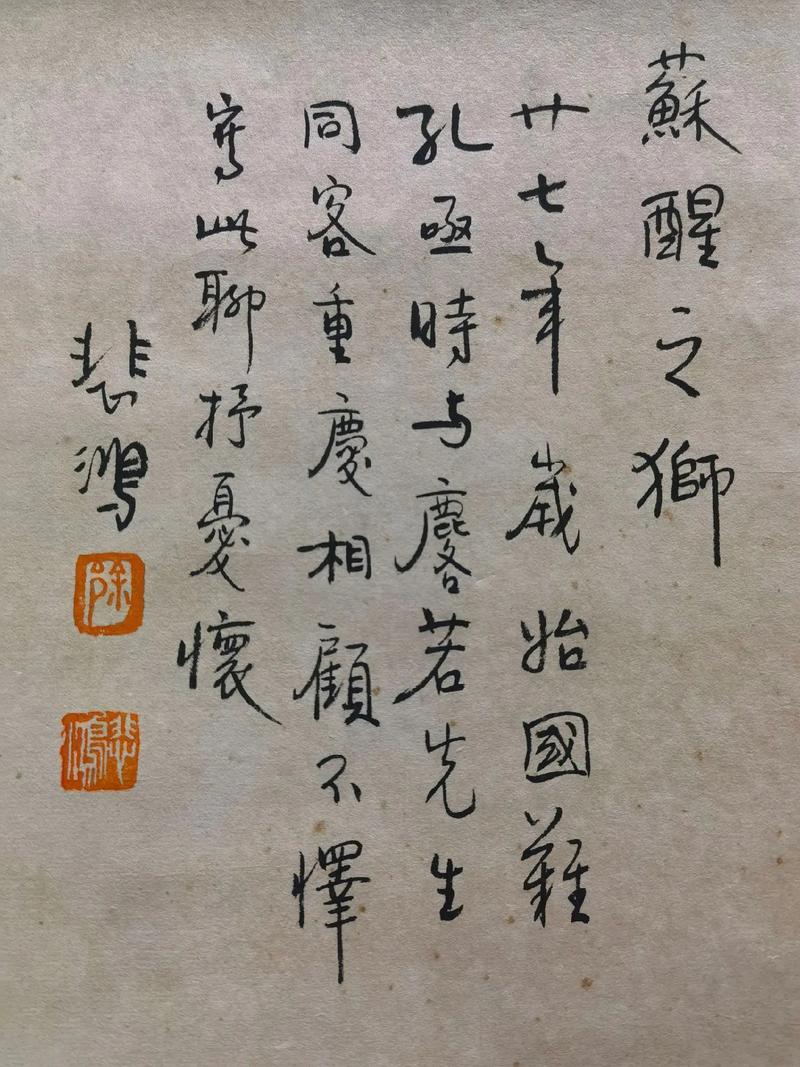 蘇醒之獅
廿七年歲始國難
孔亟時与麐若先生
同客重慶相顧不懌
寫此聊抒憂懷
悲鴻
徐
悲鴻